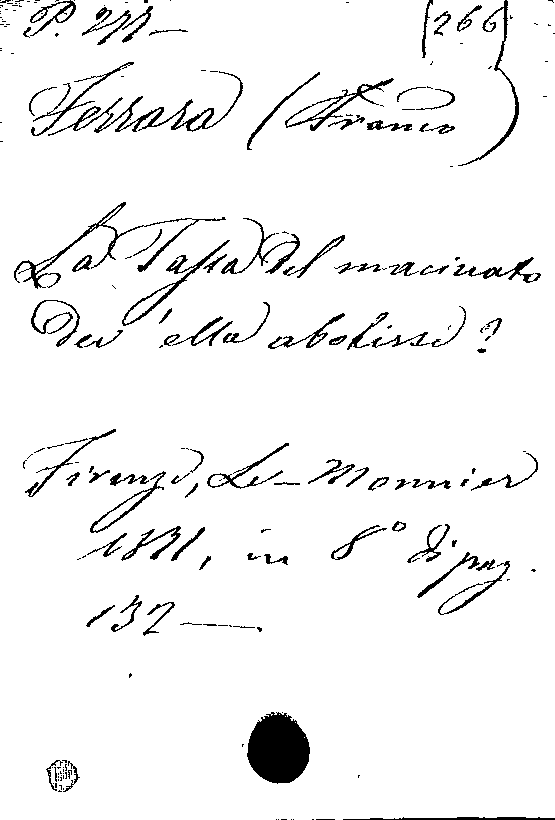 P. 277— (266)
Ferrara (Franco)
La Tassa del macinato
dev'ella abolirsi?
Firenze, Le-Monnier
1871, in 8° di pag.
132—.